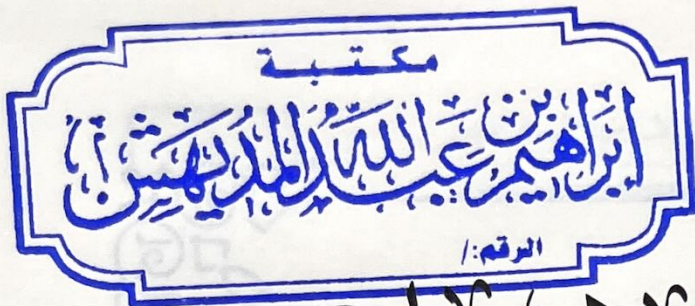 مكتبة
إبراهيم بن عبد الله المديهش
الرقم: /